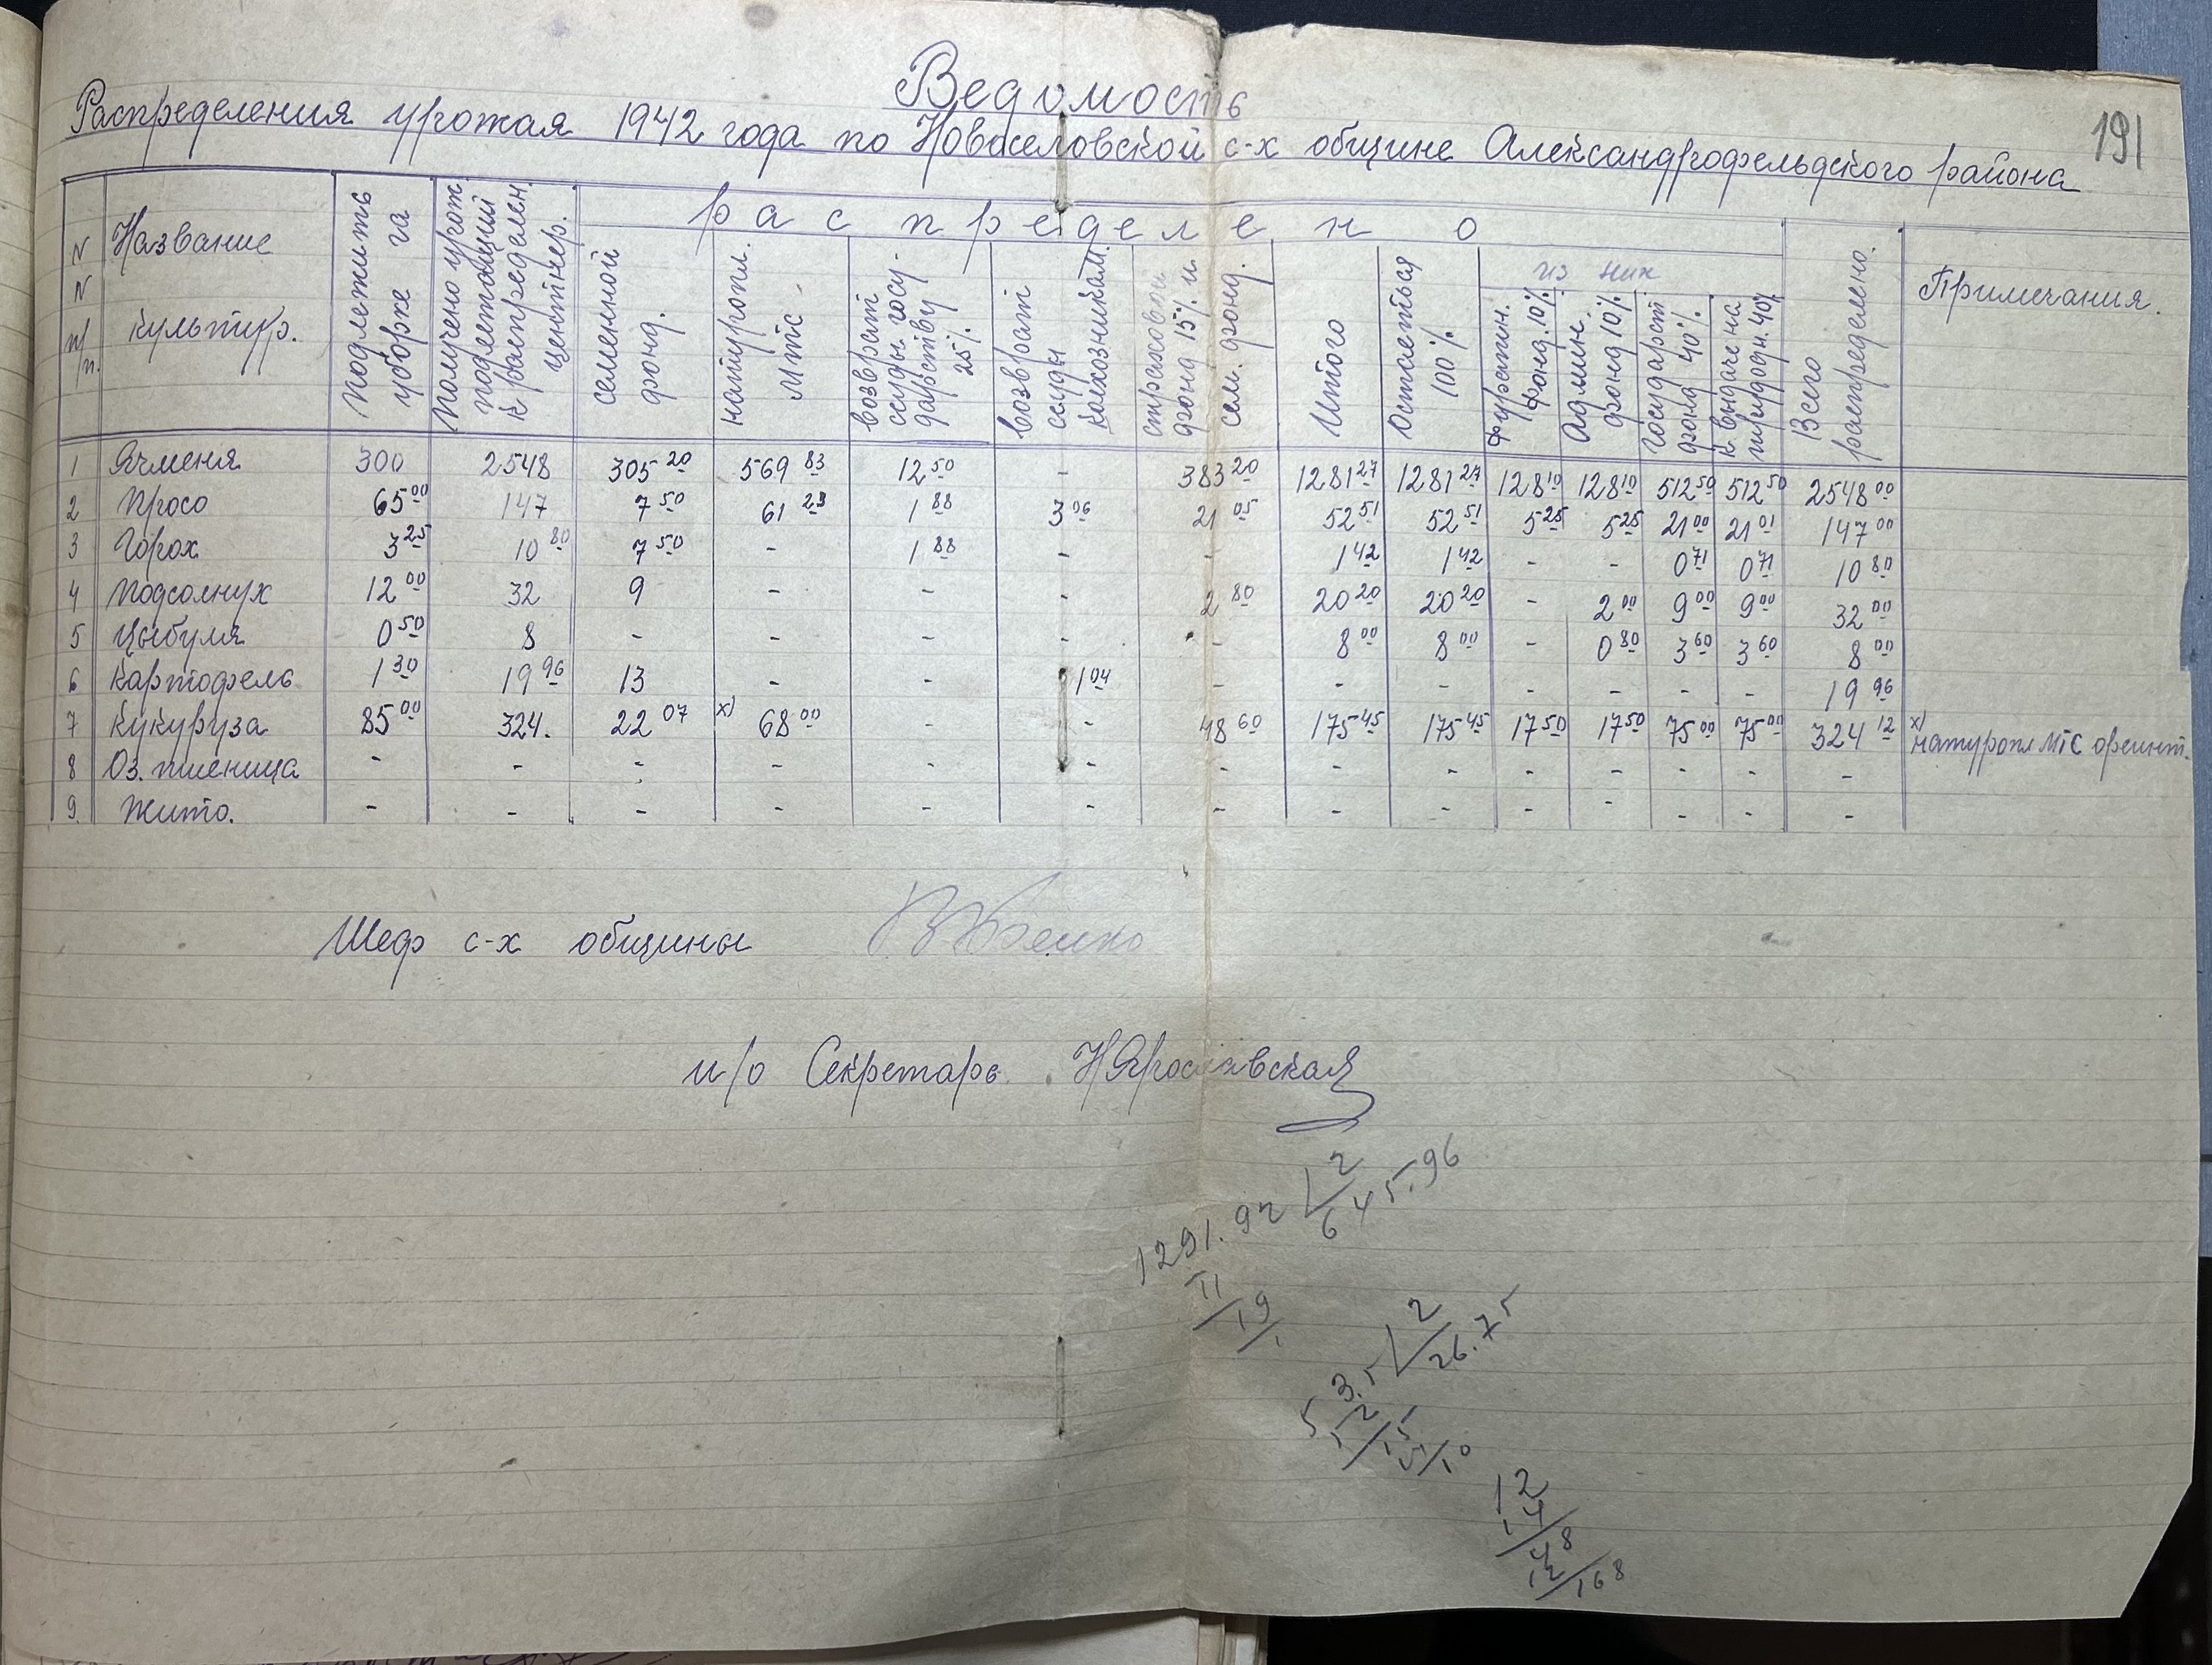 191
Ведомость
Распределения урожая 1942 года по Новоселовской с-х общине Александрофельдского района
N N п/п. | Название культур. | Подлежить уборке га | Получено урож. подлетащий к распределен. центнер. | распределено | Всего распределено. | Примечания.
семенной фонд. | натуропл. мтс | возврат ссуды госу-дарству 25% | возврат ссуды колхозникам. | страховой фонд 15% и. сем. фонд. | Итого | Остаеться 100% | из них
Фуражн. фонд. 10% | Админ. фонд 10% | Государст фонд 40% | к выдаче на трудодн. 40%
1 | Ячменя | 300 | 2548 | 305 20 | 569 83 | 12 50 | - | 383 20 | 1281 27 | 1281 27 | 128 10 | 128 10 | 512 50 | 512 50 | 2548 00
2 | Просо | 65 00 | 147 | 7 50 | 61 23 | 1 88 | 3 06 | 21 05 | 52 51 | 52 51 | 5 25 | 5 25 | 21 00 | 21 01 | 147 00
3 | Горох | 3 25 | 10 80 | 7 50 | - | 1 88 | - | - | 1 42 | 1 42 | - | - | 0 71 | 0 71 | 10 80
4 | Подсолнух | 12 00 | 32 | 9 | - | - | - | 2 80 | 20 20 | 20 20 | - | 2 00 | 9 00 | 9 00 | 32 00
5 | Цыбуля | 0 50 | 8 | - | - | - | - | - | 8 00 | 8 00 | - | 0 80 | 3 60 | 3 60 | 8 00
6 | Картофель | 1 30 | 19 96 | 13 | - | - | 1 04 | - | - | - | - | - | - | - | 19 96
7 | Кукуруза | 85 00 | 324. | 22 07 | х) 68 00 | - | - | 48 60 | 175 45 | 175 45 | 17 50 | 17 50 | 75 00 | 75 00 | 324 12 | х) натуропл МТС ореинт.
8 | Оз. пшеница | - | - | - | - | - | - | - | - | - | - | - | - | - | -
9. | Жито. | - | - | - | - | - | - | - | - | - | - | - | - | - | -
Шеф с-х общины
и/о Секретарь НЯрославская
1291.92 2
645.96
11
19
1
53.5 2
26.75
12
15
15
10
12
14
48
12
168